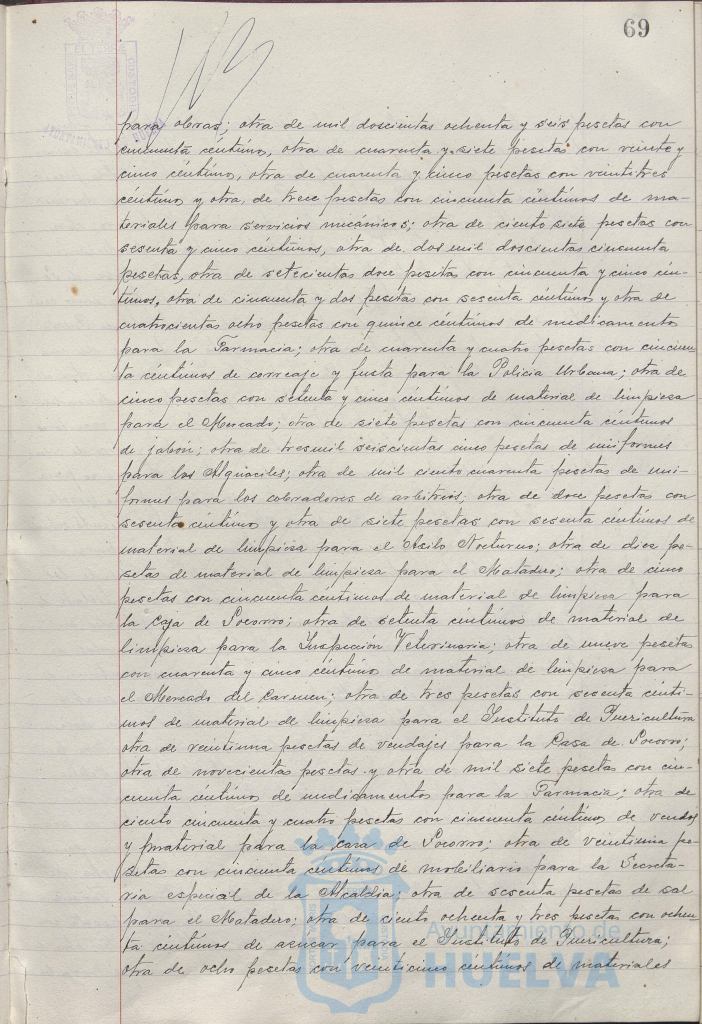 69
para obras; otra de mil doscientas ochenta y seis pesetas con
cincuenta céntimos, otra de cuarenta y siete pesetas con veinte y
cinco céntimos, otra de cuarenta y cinco pesetas con veintitres
céntimos y otra de trece pesetas con cincuenta céntimos de ma-
teriales para servicios mecánicos; otra de ciento siete pesetas con
sesenta y cinco céntimos, otra de dos mil doscientas cincuenta
pesetas, otra de setecientas doce pesetas con cincuenta y cinco cén-
timos, otra de cincuenta y dos pesetas con sesenta céntimos y otra de
cuatrocientas ocho pesetas con quince céntimos de medicamentos
para la Farmacia; otra de cuarenta y cuatro pesetas con cincuen-
ta céntimos de correaje y fusta para la Policia Urbana; otra de
cinco pesetas con setenta y cinco céntimos de material de limpieza
para el Mercado; otra de siete pesetas con cincuenta céntimos
de jabón; otra de tres mil seiscientas cinco pesetas de uniformes
para los Alguaciles; otra de mil ciento cuarenta pesetas de uni-
formes para los cobradores de arbitrios; otra de doce pesetas con
sesenta céntimos y otra de siete pesetas con sesenta céntimos de
material de limpieza para el Asilo Nocturno; otra de diez pe-
setas de material de limpieza para el Matadero; otra de cinco
pesetas con cincuenta céntimos de material de limpieza para
la Casa de Socorro; otra de setenta céntimos de material de
limpieza para la Inspección Veterinaria; otra de nueve pesetas
con cuarenta y cinco céntimos de material de limpieza para
el Mercado del Carmen; otra de tres pesetas con sesenta cénti-
mos de material de limpieza para el Instituto de Puericultura
otra de veintiuna pesetas de vendajes para la Casa de Socorro;
otra de novecientas pesetas y otra de mil siete pesetas con cin-
cuenta céntimos de medicamentos para la Farmacia; otra de
ciento cincuenta y cuatro pesetas con cincuenta céntimos de vendas
y material para la casa de Socorro; otra de veintiuna pe-
setas con cincuenta céntimos de mobiliario para la Secreta-
ria especial de la Alcaldia; otra de sesenta pesetas de sal
para el Matadero; otra de ciento ochenta y tres pesetas con ochen-
ta céntimos de azucar para el Instituto de Puericultura;
otra de ocho pesetas con veinticinco centimos de materiales
Ayuntamiento de
HUELVA